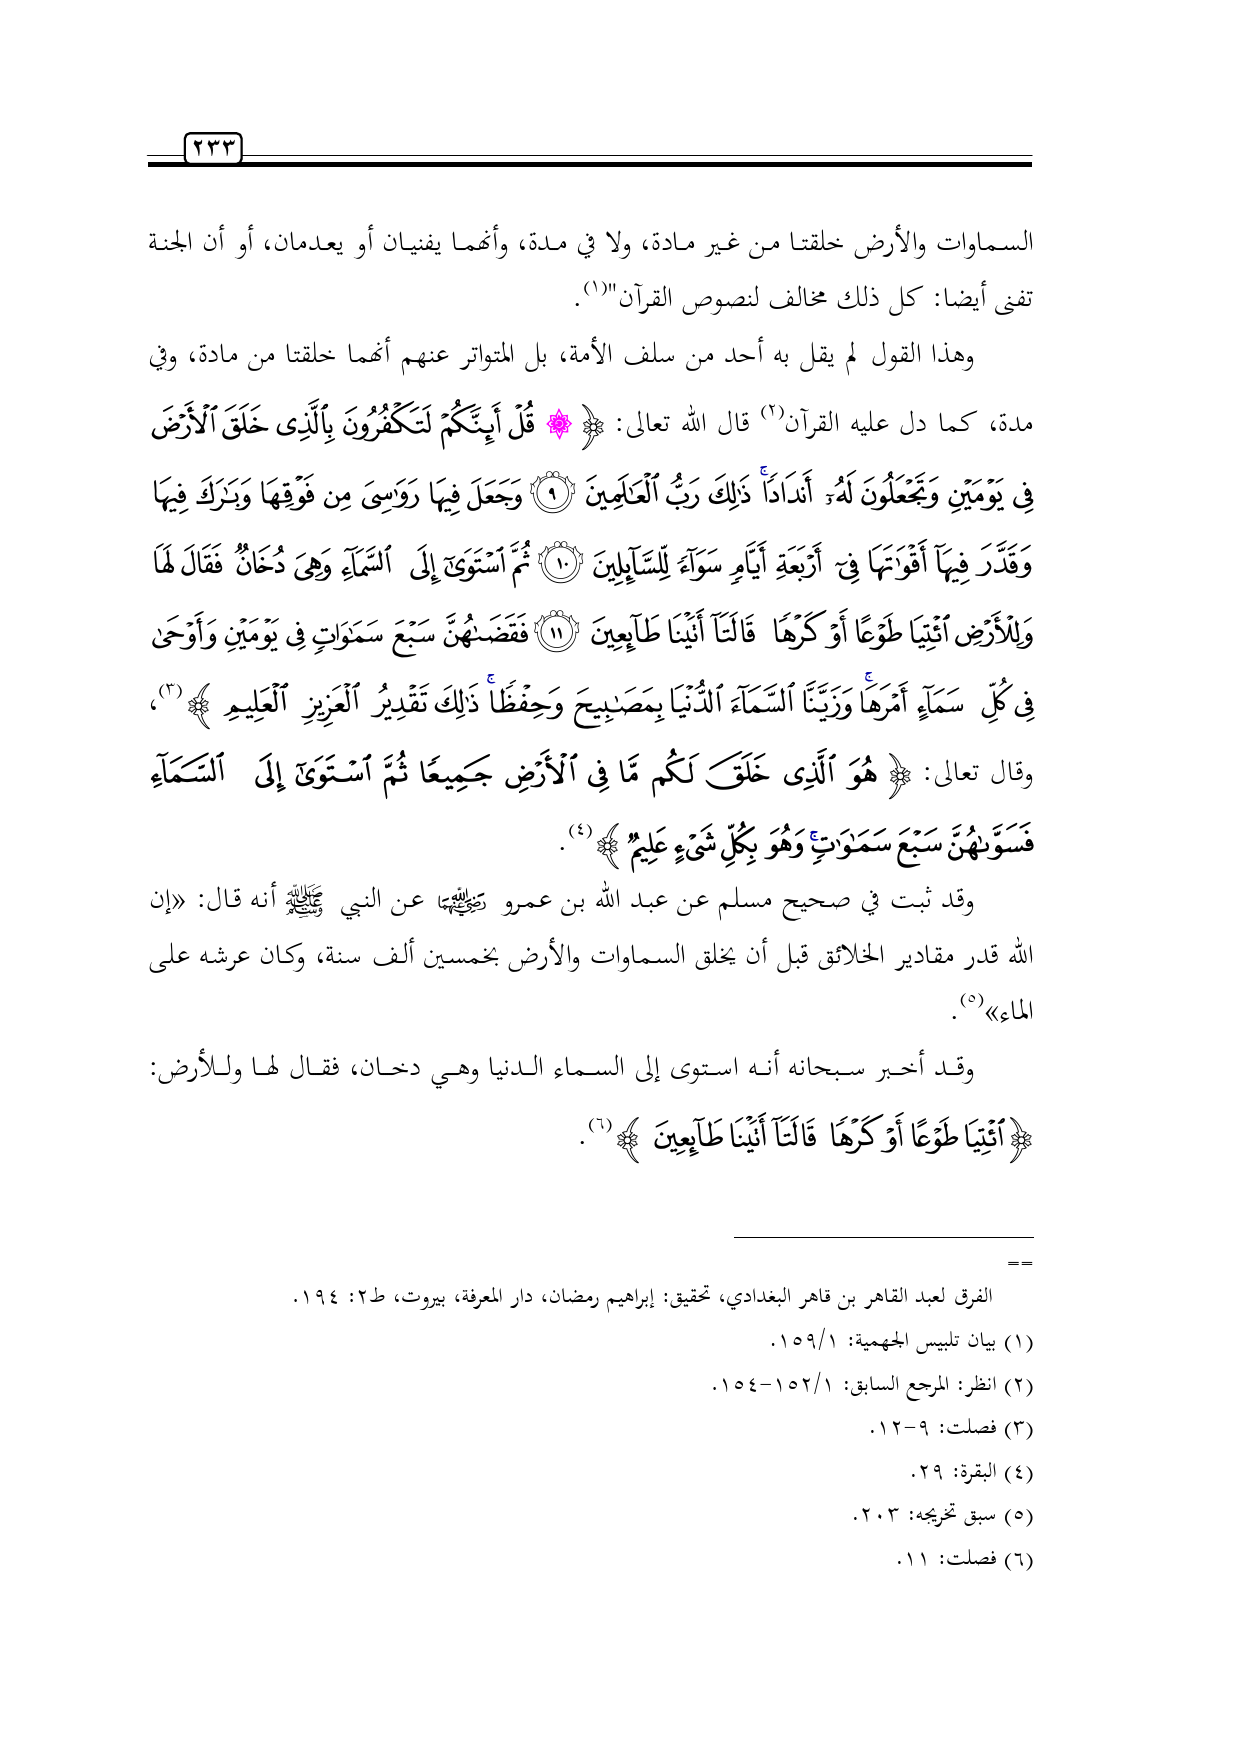 ٢٣٣
السماوات والأرض خلقتا من غير مادة، ولا في مدة، وأنهما يفنيان أو يعدمان، أو أن الجنة
تفنى أيضا: كل ذلك مخالف لنصوص القرآن"(١).
وهذا القول لم يقل به أحد من سلف الأمة، بل المتواتر عنهم أنهما خلقتا من مادة، وفي
مدة، كما دل عليه القرآن(٢) قال الله تعالى: ﴿ ۞ قُلْ أَئِنَّكُمْ لَتَكْفُرُونَ بِٱلَّذِى خَلَقَ ٱلْأَرْضَ
فِى يَوْمَيْنِ وَتَجْعَلُونَ لَهُۥٓ أَندَادًا ۚ ذَٰلِكَ رَبُّ ٱلْعَـٰلَمِينَ ٩ وَجَعَلَ فِيهَا رَوَٰسِىَ مِن فَوْقِهَا وَبَـٰرَكَ فِيهَا
وَقَدَّرَ فِيهَآ أَقْوَٰتَهَا فِىٓ أَرْبَعَةِ أَيَّامٍ سَوَآءً لِّلسَّآئِلِينَ ١٠ ثُمَّ ٱسْتَوَىٰٓ إِلَى ٱلسَّمَآءِ وَهِىَ دُخَانٌ فَقَالَ لَهَا
وَلِلْأَرْضِ ٱئْتِيَا طَوْعًا أَوْ كَرْهًا قَالَتَآ أَتَيْنَا طَآئِعِينَ ١١ فَقَضَىٰهُنَّ سَبْعَ سَمَـٰوَاتٍ فِى يَوْمَيْنِ وَأَوْحَىٰ
فِى كُلِّ سَمَآءٍ أَمْرَهَا ۚ وَزَيَّنَّا ٱلسَّمَآءَ ٱلدُّنْيَا بِمَصَـٰبِيحَ وَحِفْظًا ۚ ذَٰلِكَ تَقْدِيرُ ٱلْعَزِيزِ ٱلْعَلِيمِ ﴾(٣)،
وقال تعالى: ﴿ هُوَ ٱلَّذِى خَلَقَ لَكُم مَّا فِى ٱلْأَرْضِ جَمِيعًا ثُمَّ ٱسْتَوَىٰٓ إِلَى ٱلسَّمَآءِ
فَسَوَّىٰهُنَّ سَبْعَ سَمَـٰوَٰتٍ ۚ وَهُوَ بِكُلِّ شَىْءٍ عَلِيمٌ ﴾(٤).
وقد ثبت في صحيح مسلم عن عبد الله بن عمرو رضي الله عنهما عن النبي ﷺ أنه قال: «إن
الله قدر مقادير الخلائق قبل أن يخلق السماوات والأرض بخمسين ألف سنة، وكان عرشه على
الماء»(٥).
وقد أخبر سبحانه أنه استوى إلى السماء الدنيا وهي دخان، فقال لها وللأرض:
﴿ ٱئْتِيَا طَوْعًا أَوْ كَرْهًا قَالَتَآ أَتَيْنَا طَآئِعِينَ ﴾(٦).
==
الفرق لعبد القاهر بن قاهر البغدادي، تحقيق: إبراهيم رمضان، دار المعرفة، بيروت، ط٢: ١٩٤.
(١) بيان تلبيس الجهمية: ١/١٥٩.
(٢) انظر: المرجع السابق: ١/١٥٢-١٥٤.
(٣) فصلت: ٩-١٢.
(٤) البقرة: ٢٩.
(٥) سبق تخريجه: ٢٠٣.
(٦) فصلت: ١١.